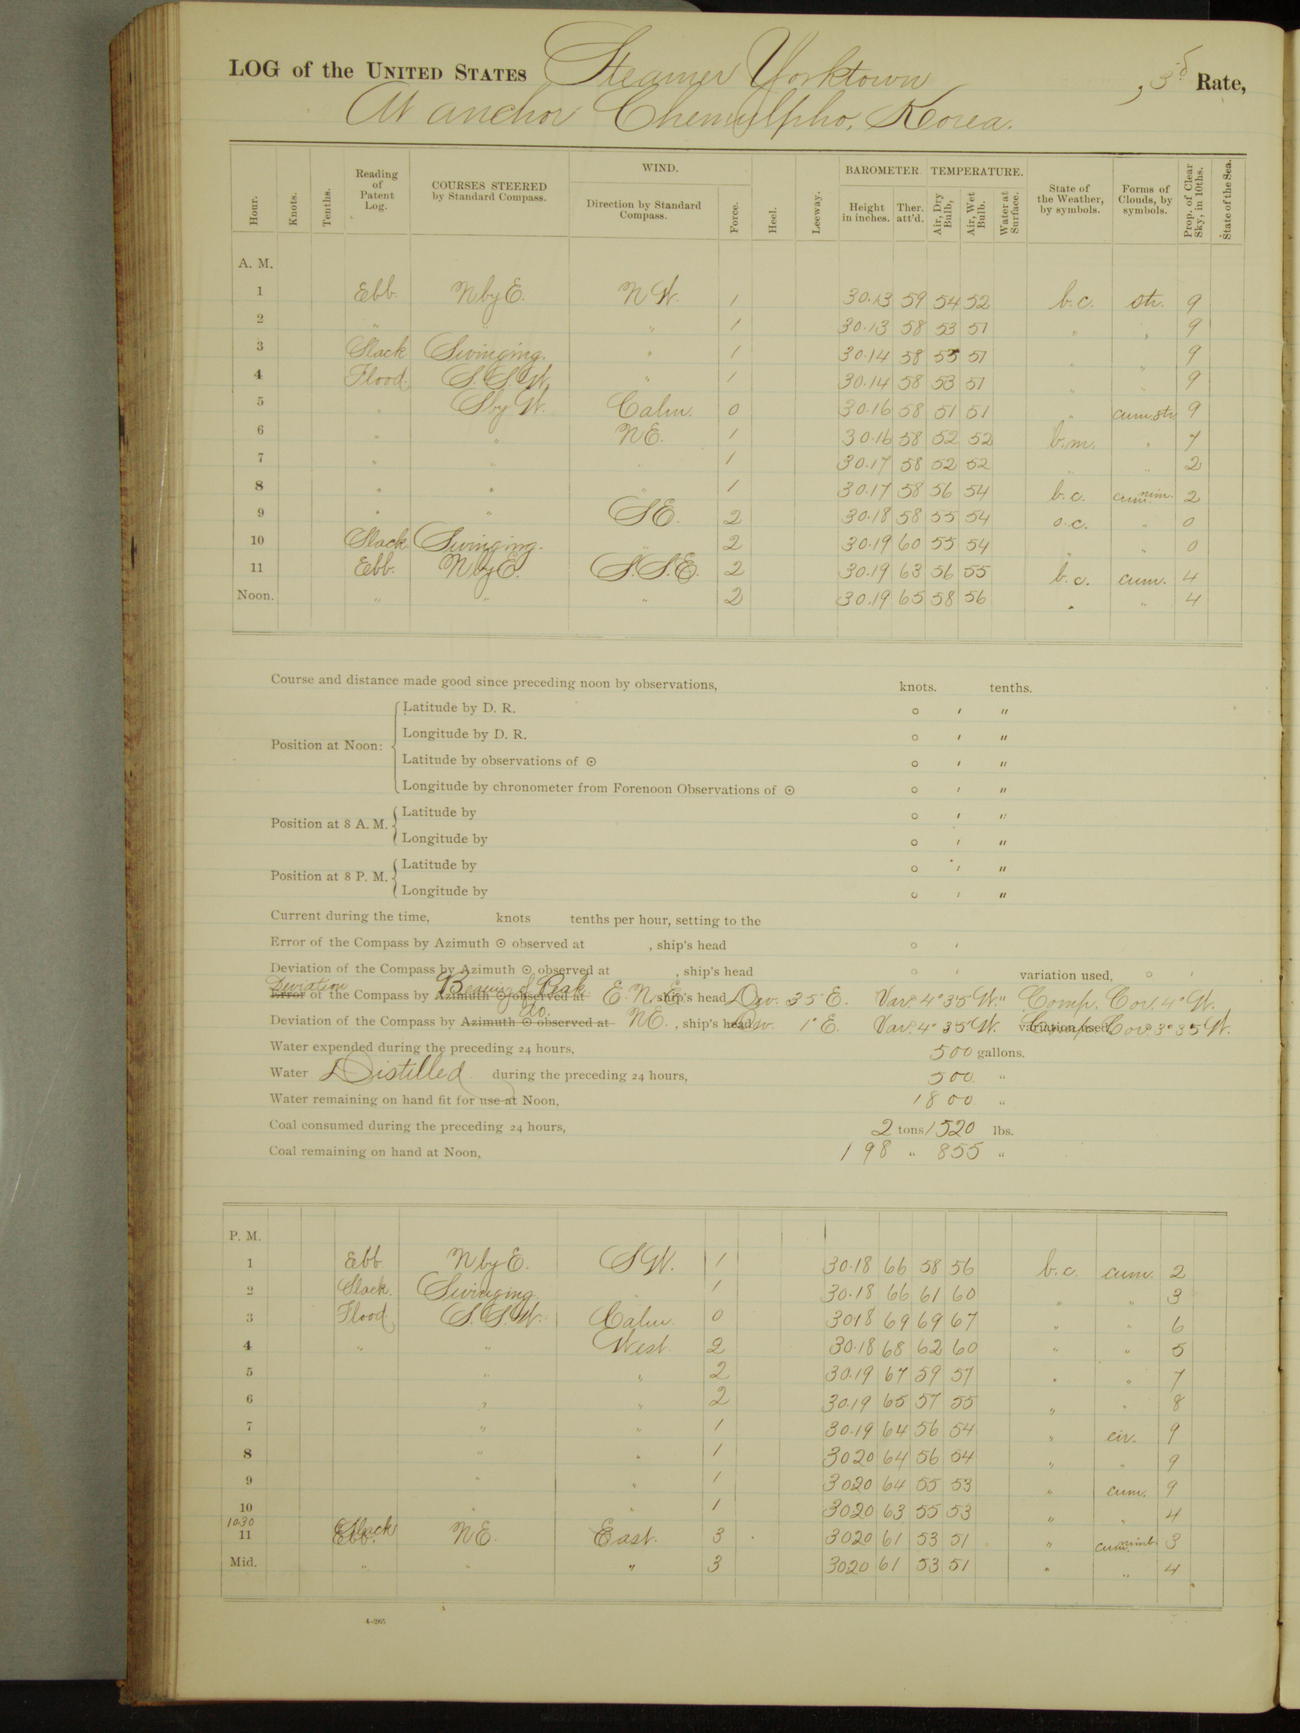 LOG of the UNITED STATES Steamer Yorktown, 3d Rate,
At anchor Chemulpho, Korea.
Hour. Knots. Tenths. Reading of Patent Log. COURSES STEERED by Standard Compass. WIND. Direction by Standard Compass. Force. Heel. Leeway. BAROMETER. Height in inches. Ther. att'd. TEMPERATURE. Air, Dry Bulb. Air, Wet Bulb. Water at Surface. State of the Weather, by symbols. Forms of Clouds, by symbols. Prop. of Clear Sky, in 10ths. State of the Sea.
A. M.
1 Ebb. N by E. N W. 1 30.13 59 54 52 b.c. str. 9
2 " " " 1 30.13 58 53 51 " " 9
3 Slack Swinging. " 1 30.14 58 53 51 9
4 Flood S. S. W. " 1 30.14 58 53 51 " " 9
5 " S by W. Calm. 0 30.16 58 51 51 " cum str 9
6 " " N E. 1 30.16 58 52 52 b.m. " 7
7 " " " 1 30.17 58 52 52 " " 2
8 " " " 1 30.17 58 56 54 b.c. cum. nim. 2
9 " " S E. 2 30.18 58 55 54 o.c. " 0
10 Slack Swinging. " 2 30.19 60 55 54 " " 0
11 Ebb. N by E. S. S. E. 2 30.19 63 56 55 b.c. cum. 4
Noon. " " " 2 30.19 65 58 56 " " 4
Course and distance made good since preceding noon by observations, knots. tenths.
Position at Noon: Latitude by D. R. ° ′ ″
Longitude by D. R. ° ′ ″
Latitude by observations of ☉ ° ′ ″
Longitude by chronometer from Forenoon Observations of ☉ ° ′ ″
Position at 8 A. M. Latitude by ° ′ ″
Longitude by ° ′ ″
Position at 8 P. M. Latitude by ° ′ ″
Longitude by ° ′ ″
Current during the time, knots tenths per hour, setting to the
Error of the Compass by Azimuth ☉ observed at , ship's head ° ′
Deviation of the Compass by Azimuth ☉ observed at , ship's head ° ′ variation used, ° ′
Deviation Error of the Compass by Bearing of Peak Azimuth ☉ observed at E. N. E. ship's head Dev. 35′ E. Var. 4° 35′ W. Comp. Cor. 4° W.
Deviation of the Compass by do. Azimuth ☉ observed at N E. , ship's head Dev. 1° E. Var. 4° 35′ W. variation used Comp. Cor. 3° 35′ W.
Water expended during the preceding 24 hours, 500 gallons.
Water Distilled during the preceding 24 hours, 500 "
Water remaining on hand fit for use at Noon, 1800 "
Coal consumed during the preceding 24 hours, 2 tons 1520 lbs.
Coal remaining on hand at Noon, 198 " 855 "
P. M.
1 Ebb N by E. S W. 1 30.18 66 58 56 b.c. cum. 2
2 Slack. Swinging. " 1 30.18 66 61 60 " " 3
3 Flood S. S. W. Calm 0 3018 69 69 67 " " 6
4 " " West. 2 30.18 68 62 60 " " 5
5 " " 2 30.19 67 59 57 " " 7
6 " " 2 30.19 65 57 55 " " 8
7 " " 1 30.19 64 56 54 " cir. 9
8 " " 1 3020 64 56 54 " " 9
9 " " 1 3020 64 55 53 " cum. 9
10 " " 1 3020 63 55 53 " " 4
10 30 Slack
11 Ebb. N E. East. 3 3020 61 53 51 " cum. nimb. 3
Mid. " " " 3 3020 61 53 51 " " 4
4—265